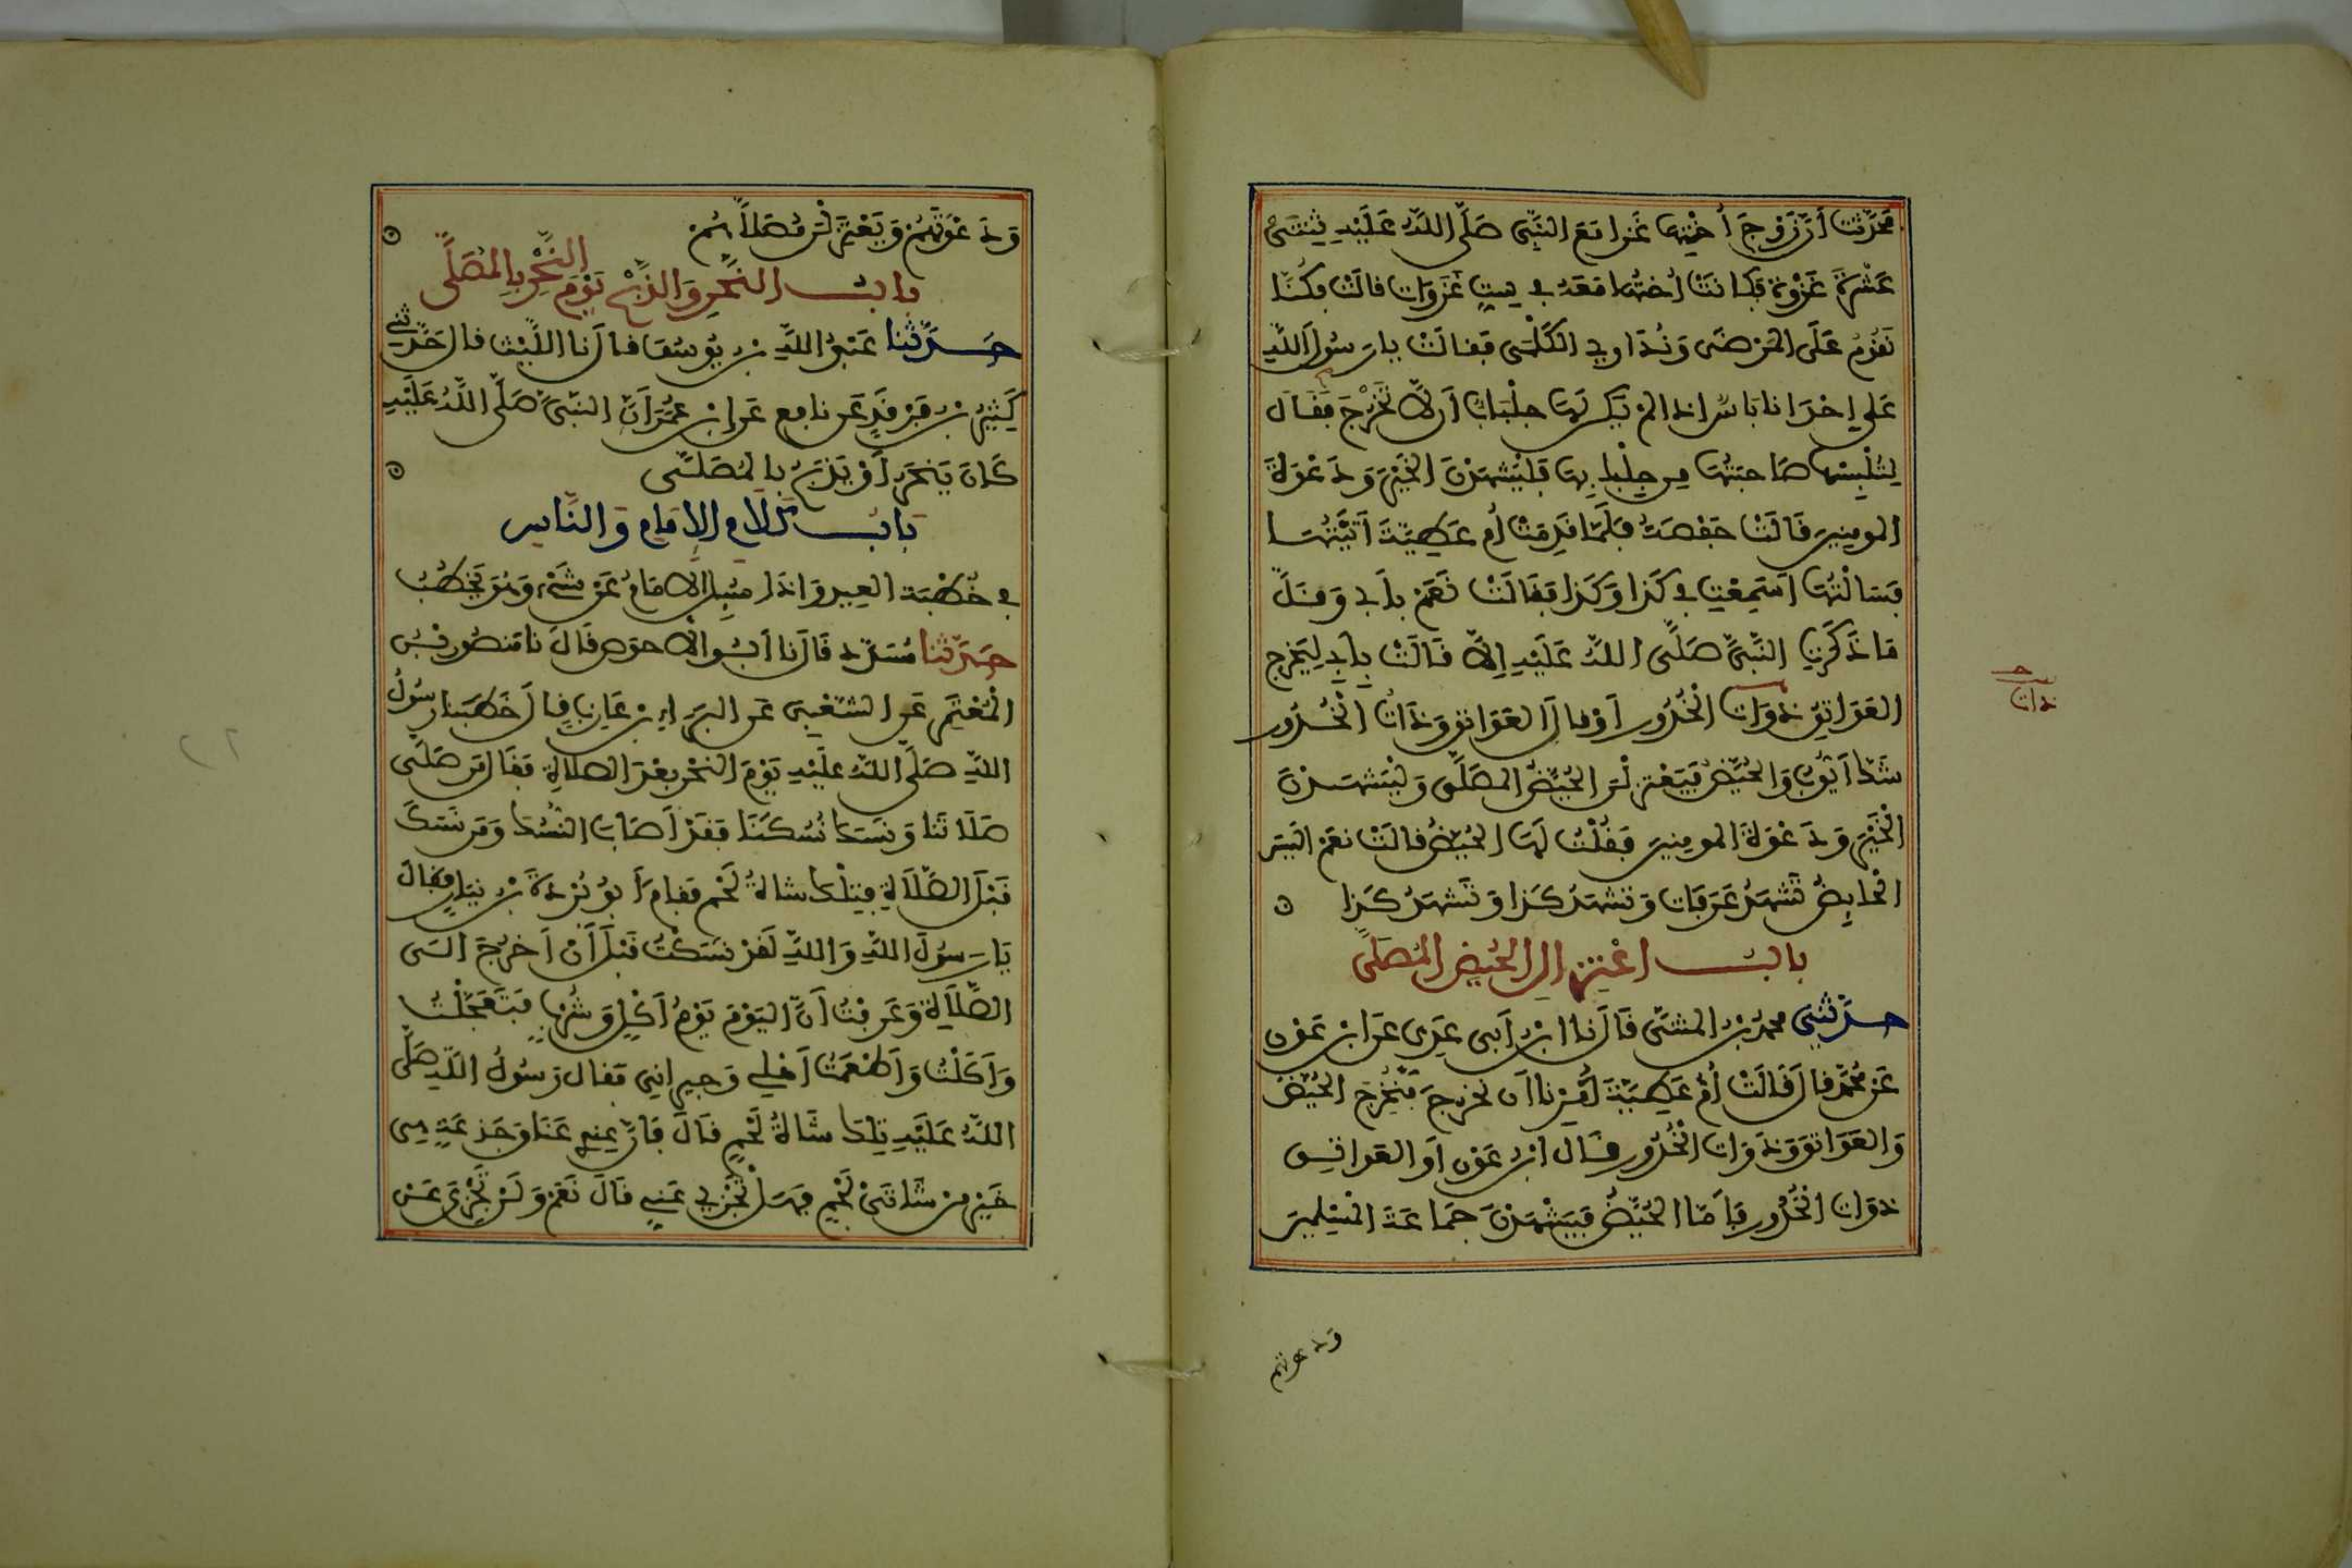 فَحَدَّثَتْ أَنَّ زَوْجَ أُخْتِهَا غَزَا مَعَ النَّبِيِّ صَلَّى اللَّهُ عَلَيْهِ ثِنْتَىْ
عَشْرَةَ غَزْوَةً فَكَانَتْ أُخْتُهَا مَعَهُ فِي سِتِّ غَزَوَاتٍ قَالَتْ فَكُنَّا
نَقُومُ عَلَى الْمَرْضَى وَنُدَاوِي الْكَلْمَى فَقَالَتْ يَا رَسُولَ اللَّهِ
عَلَى إِحْدَانَا بَأْسٌ إِذَا لَمْ يَكُنْ لَهَا جِلْبَابٌ أَنْ لَا تَخْرُجَ فَقَالَ
لِتُلْبِسْهَا صَاحِبَتُهَا مِنْ جِلْبَابِهَا فَلْيَشْهَدْنَ الْخَيْرَ وَدَعْوَةَ
الْمُومِنِينَ قَالَتْ حَفْصَةُ فَلَمَّا قَدِمَتْ أُمُّ عَطِيَّةَ أَتَيْتُهَا
فَسَأَلْتُهَا أَسَمِعْتِ فِي كَذَا وَكَذَا فَقَالَتْ نَعَمْ بِأَبِي وَقَلَّ
مَا ذَكَرَتِ النَّبِيَّ صَلَّى اللَّهُ عَلَيْهِ إِلَّا قَالَتْ بِأَبِي لِيَخْرُجِ
الْعَوَاتِقُ ذَوَاتُ الْخُدُورِ أَوْ قَالَ الْعَوَاتِقُ وَذَاتُ الْخُدُورِ
شَكَّ أَيُّوبُ وَالْحُيَّضُ فَيَعْتَزِلْنَ الْحُيَّضُ الْمُصَلَّى وَلْيَشْهَدْنَ
الْخَيْرَ وَدَعْوَةَ الْمُومِنِينَ فَقُلْتُ لَهَا الْحُيَّضُ قَالَتْ نَعَمْ أَلَيْسَ
الْحَائِضُ تَشْهَدُ عَرَفَاتٍ وَتَشْهَدُ كَذَا وَتَشْهَدُ كَذَا
بَابُ اعْتِزَالِ الْحُيَّضِ الْمُصَلَّى
حَدَّثَنِي مُحَمَّدُ بْنُ الْمُثَنَّى قَالَ نَا ابْنُ أَبِي عَدِيٍّ عَنِ ابْنِ عَوْنٍ
عَنْ مُحَمَّدٍ قَالَ قَالَتْ أُمُّ عَطِيَّةَ أُمِرْنَا أَنْ نَخْرُجَ فَنُخْرِجَ الْحُيَّضَ
وَالْعَوَاتِقَ وَذَوَاتِ الْخُدُورِ قَالَ ابْنُ عَوْنٍ أَوِ الْعَوَاتِقَ
ذَوَاتِ الْخُدُورِ فَأَمَّا الْحُيَّضُ فَيَشْهَدْنَ جَمَاعَةَ الْمُسْلِمِينَ
ودعوتهم
ذات
وَدَعْوَتَهُمْ وَيَعْتَزِلْنَ مُصَلَّاهُمْ
بَابُ النَّحْرِ وَالذَّبْحِ يَوْمَ النَّحْرِ بِالْمُصَلَّى
حَدَّثَنَا عَبْدُ اللَّهِ بْنُ يُوسُفَ قَالَ نَا اللَّيْثُ قَالَ حَدَّثَنِي
كَثِيرُ بْنُ فَرْقَدٍ عَنْ نَافِعٍ عَنِ ابْنِ عُمَرَ أَنَّ النَّبِيَّ صَلَّى اللَّهُ عَلَيْهِ
كَانَ يَنْحَرُ أَوْ يَذْبَحُ بِالْمُصَلَّى
بَابُ كَلَامِ الْإِمَامِ وَالنَّاسِ
فِي خُطْبَةِ الْعِيدِ وَإِذَا سُئِلَ الْإِمَامُ عَنْ شَيْءٍ وَهُوَ يَخْطُبُ
حَدَّثَنَا مُسَدَّدٌ قَالَ نَا أَبُو الْأَحْوَصِ قَالَ نَا مَنْصُورُ بْنُ
الْمُعْتَمِرِ عَنِ الشَّعْبِيِّ عَنِ الْبَرَاءِ بْنِ عَازِبٍ قَالَ خَطَبَنَا رَسُولُ
اللَّهِ صَلَّى اللَّهُ عَلَيْهِ يَوْمَ النَّحْرِ بَعْدَ الصَّلَاةِ فَقَالَ مَنْ صَلَّى
صَلَاتَنَا وَنَسَكَ نُسُكَنَا فَقَدْ أَصَابَ النُّسُكَ وَمَنْ نَسَكَ
قَبْلَ الصَّلَاةِ فَتِلْكَ شَاةُ لَحْمٍ فَقَامَ أَبُو بُرْدَةَ بْنُ نِيَارٍ فَقَالَ
يَا رَسُولَ اللَّهِ وَاللَّهِ لَقَدْ نَسَكْتُ قَبْلَ أَنْ أَخْرُجَ إِلَى
الصَّلَاةِ وَعَرَفْتُ أَنَّ الْيَوْمَ يَوْمُ أَكْلٍ وَشُرْبٍ فَتَعَجَّلْتُ
وَأَكَلْتُ وَأَطْعَمْتُ أَهْلِي وَجِيرَانِي فَقَالَ رَسُولُ اللَّهِ صَلَّى
اللَّهُ عَلَيْهِ تِلْكَ شَاةُ لَحْمٍ قَالَ فَإِنَّ عِنْدِي عَنَاقَ جَذَعَةٍ هِيَ
خَيْرٌ مِنْ شَاتَيْ لَحْمٍ فَهَلْ تَجْزِي عَنِّي قَالَ نَعَمْ وَلَنْ تَجْزِيَ عَنْ